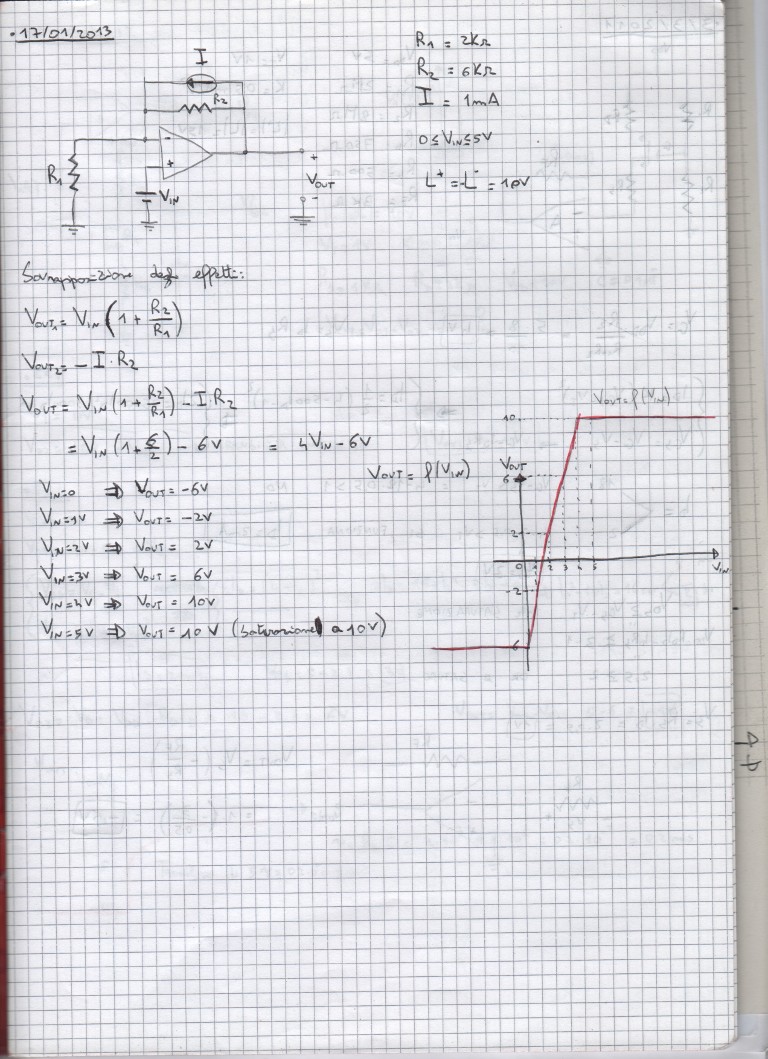 17/01/2013
I
R2
R1
-
+
VIN
+
VOUT
-
R1 = 2KΩ
R2 = 6KΩ
I = 1mA
0 ≤ VIN ≤ 5V
L+ = -L- = 10V
Sovrapposizione degli effetti:
VOUT1 = VIN (1 + R2/R1)
VOUT2 = - I · R2
VOUT = VIN (1 + R2/R1) - I · R2
= VIN (1 + 6/2) - 6V = 4VIN - 6V
VIN=0 ⇒ VOUT = -6V
VIN=1V ⇒ VOUT = -2V
VIN=2V ⇒ VOUT = 2V
VIN=3V ⇒ VOUT = 6V
VIN=4V ⇒ VOUT = 10V
VIN=5V ⇒ VOUT = 10V (Saturazione a 10V)
VOUT = f(VIN)
VOUT = f(VIN)
10
VOUT
6
2
0 1 2 3 4 5
VIN
-2
-6